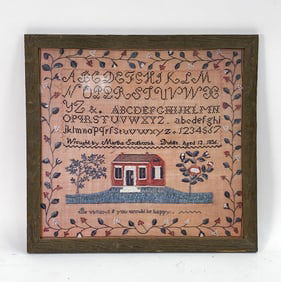 ABCDEFGHIJKLM
NOPQRSTUVWX
YZ &. ABCDEFGHIJKLMN
OPQRSTUVWXYZ. abcdefghi
jklmnopqrstuvwxyz. 1234567
Wrought by Martha Aged 12,
Be virtuous & you would be happy.